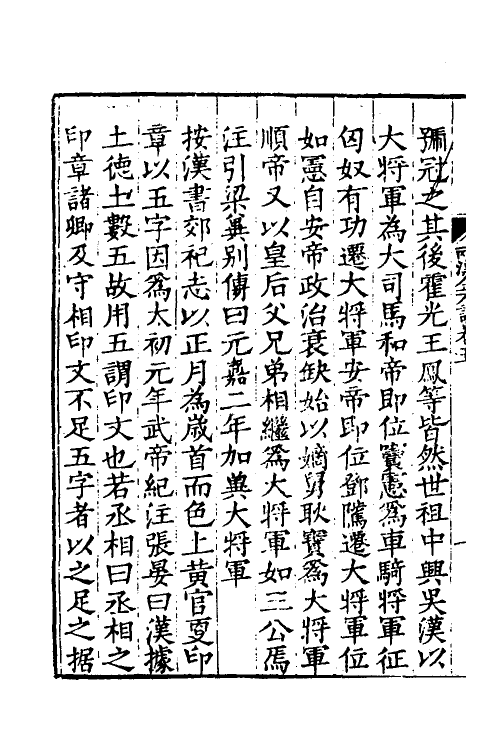 號冠之其後霍光王鳳等皆然世祖中興吳漢以
大將軍為大司馬和帝即位竇憲為車騎將軍征
匈奴有功遷大將軍安帝即位鄧騭遷大將軍位
如憲自安帝政治衰缺始以嫡舅耿寶為大將軍
順帝又以皇后父兄弟相繼為大將軍如三公焉
注引梁冀別傳曰元嘉二年加冀大將軍
按漢書郊祀志以正月為歲首而色上黃官更印
章以五字因為太初元年武帝紀注張晏曰漢據
土德土數五故用五謂印文也若丞相曰丞相之
印章諸卿及守相印文不足五字者以之足之据